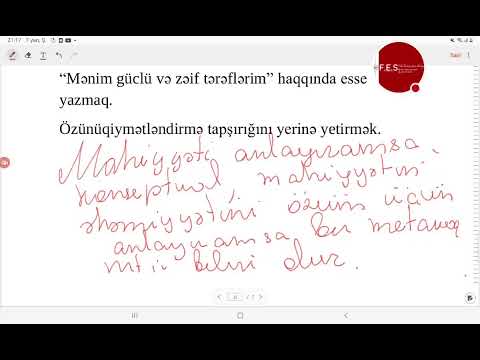 21:17 7 yan, Ş
Sazlı
F.E.S
“Mənim güclü və zəif tərəflərim” haqqında esse
yazmaq.
Özünüqiymətləndirmə tapşırığını yerinə yetirmək.
Mahiyyəti anlayıramsa,
konseptual, mahiyyətini
əhəmiyyətini özüm üçün
anlayıramsa bu
olur.